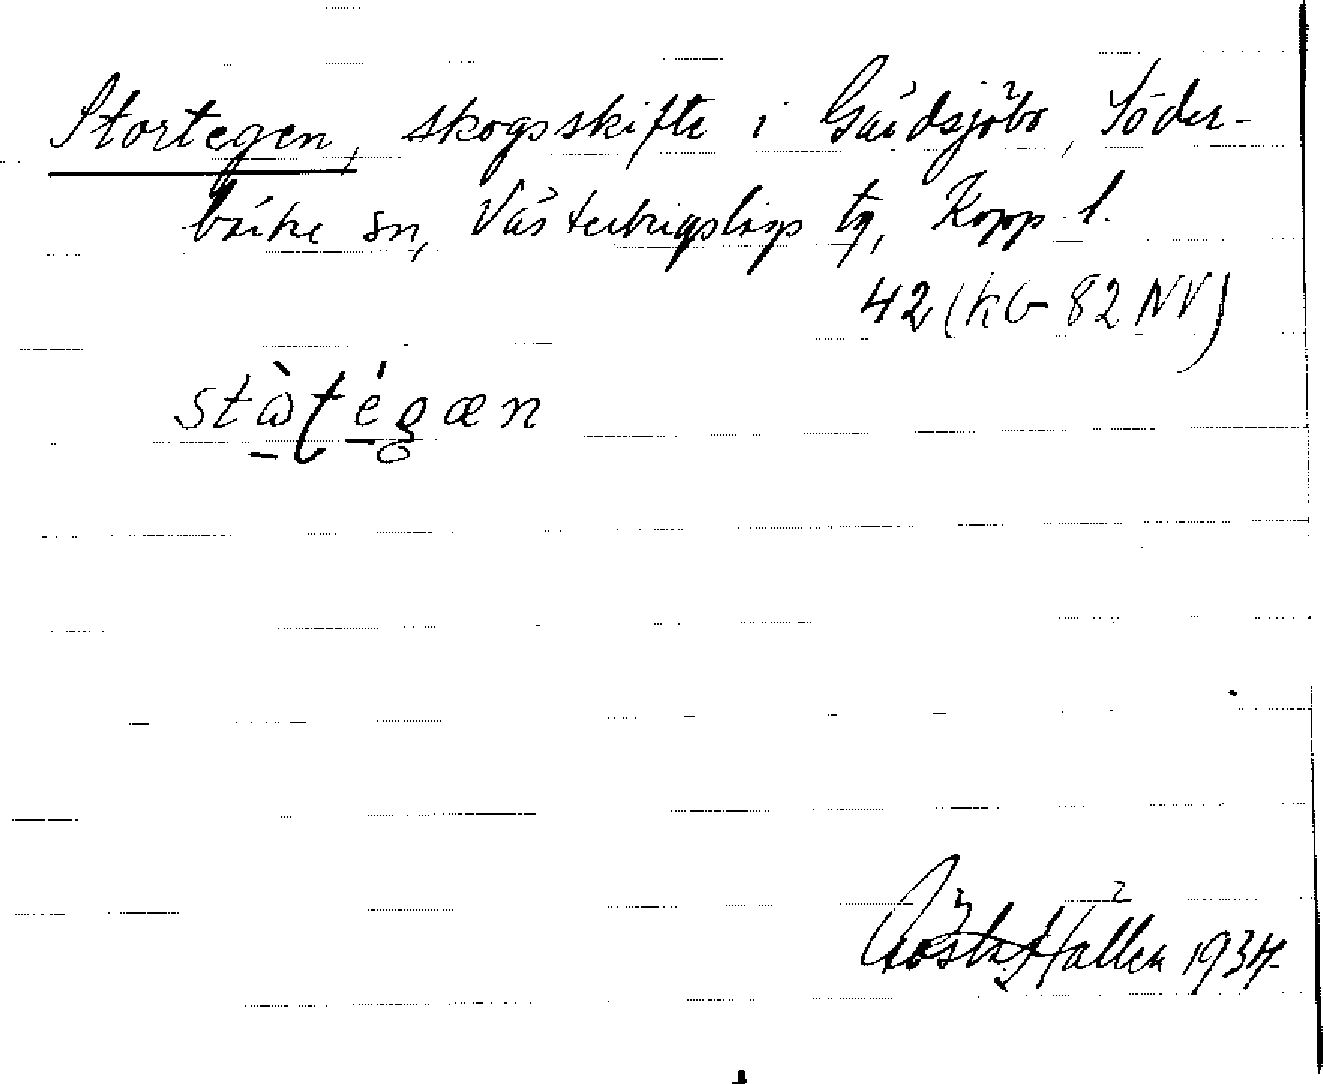 Stortegen, skogsskifte i Gårdsjöbo, Söder-
bärke sn, Västerbergslags tg, Kopp l.
42 (KG 82 NV)
stɷ̀ʈégæn
Gösta Hallén 1934